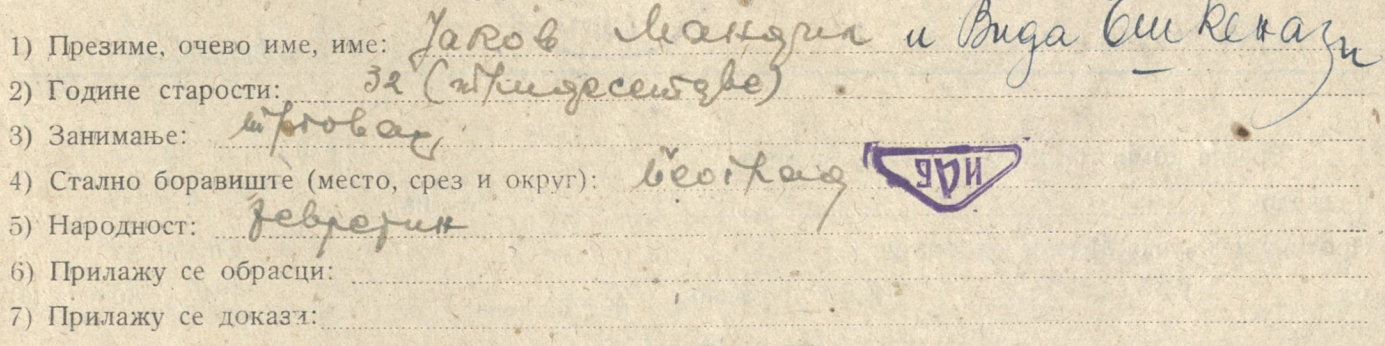 1) Презиме, очево име, име: Јаков Мандил и Вида Ешкенази
2) Године старости: 32 (тридесетдве)
3) Занимање: трговац
4) Стално боравиште (место, срез и округ): Београд ИАБ
5) Народност: Јеврејин
6) Прилажу се обрасци:
7) Прилажу се докази: